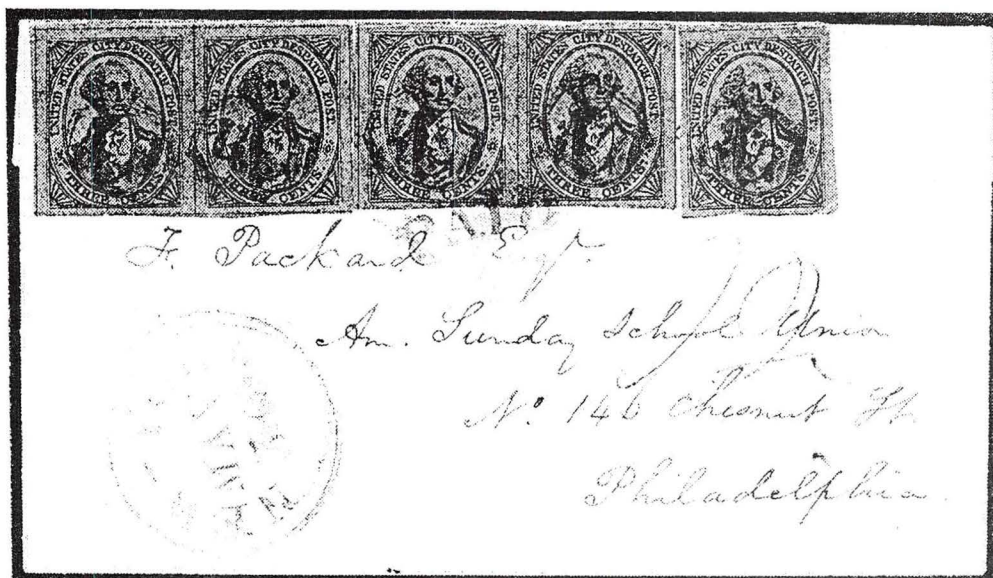 UNITED STATES CITY DESPATCH POST. THREE CENTS.
UNITED STATES CITY DESPATCH POST. THREE CENTS.
UNITED STATES CITY DESPATCH POST. THREE CENTS.
UNITED STATES CITY DESPATCH POST. THREE CENTS.
UNITED STATES CITY DESPATCH POST. THREE CENTS.
PAID
F. Packard Esqr.
Am. Sunday School Union
No. 146 Chesnut St.
Philadelphia.